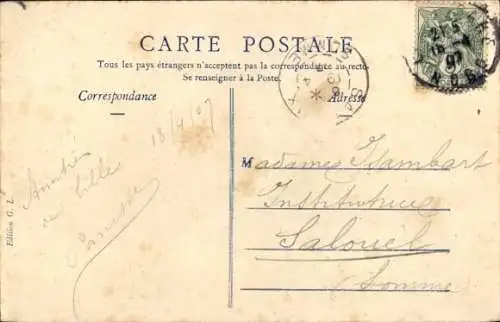 CARTE POSTALE
Tous les pays étrangers n'acceptent pas la correspondance au recto
Se renseigner à la Poste.
Correspondance
Adresse
18/4/07
Madame Hambart
Institutrice
Salouel
Somme
de Lille
Edition G. L.